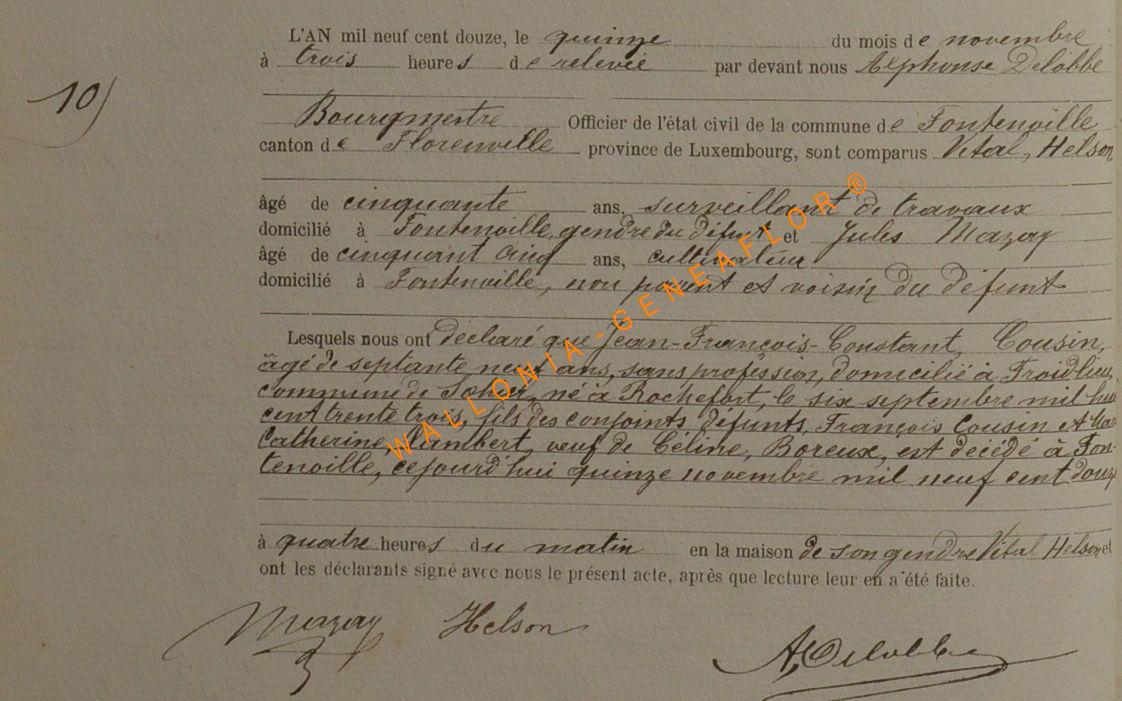 L'AN mil neuf cent douze, le quinze du mois de novembre
à trois heures de relevée par devant nous Alphonse Delobbe
10)
Bourgmestre Officier de l'état civil de la commune de Fontenoille
canton de Florenville province de Luxembourg, sont comparus Vital, Helson
âgé de cinquante ans, surveillant de travaux
domicilié à Fontenoille, gendre du défunt et Jules Mazay
âgé de cinquant cinq ans, cultivateur
domicilié à Fontenoille, non parent et voisin du défunt
Lesquels nous ont déclaré que Jean-François-Constant, Cousin,
âgé de septante neuf ans, sans profession, domicilié à Froidlieu,
commune de Sohier, né à Rochefort, le six septembre mil hui
cent trente trois, fils des conjoints défunts, François Cousin et Mar
Catherine, Lambert, veuf de Céline, Boreux, est décédé à Fon-
tenoille, cejourd'hui quinze novembre mil neuf cent douze
à quatre heures du matin en la maison de son gendre Vital Helson et
ont les déclarants signé avec nous le présent acte, après que lecture leur en a été faite.
Mazay Helson A. Delobbe
WALLONIA-GENEAFLOR®